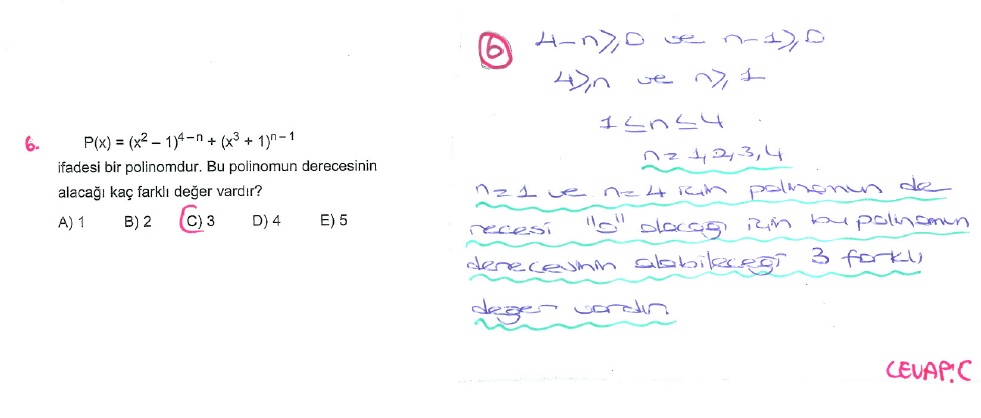 6.
P(x) = (x² – 1)⁴⁻ⁿ + (x³ + 1)ⁿ⁻¹
ifadesi bir polinomdur. Bu polinomun derecesinin
alacağı kaç farklı değer vardır?
A) 1 B) 2 C) 3 D) 4 E) 5
6 4-n≥0 ve n-1≥0
4≥n ve n≥1
1≤n≤4
n=1,2,3,4
n=1 ve n=4 için polinomun de
recesi "6" olacağı için bu polinomun
derecesinin alabileceği 3 farklı
değer vardır
CEVAP:C